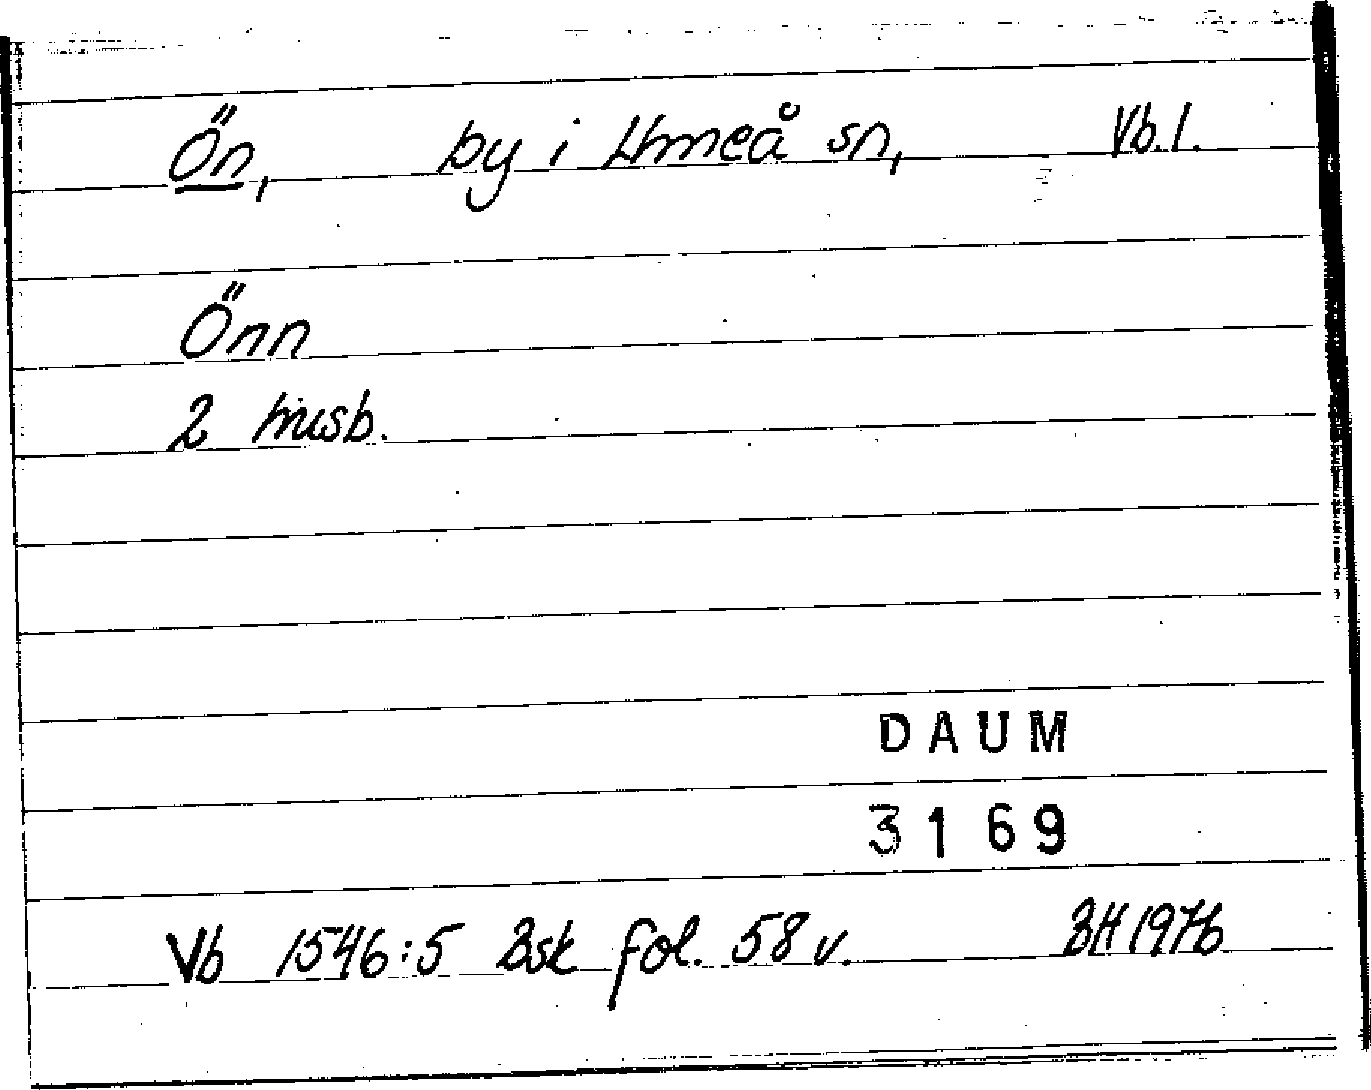 Ön, by i Umeå sn, Vb.l.
Önn
2 husb.
DAUM
3169
Vb 1546:5 Bsk fol. 58 v. BH 1976